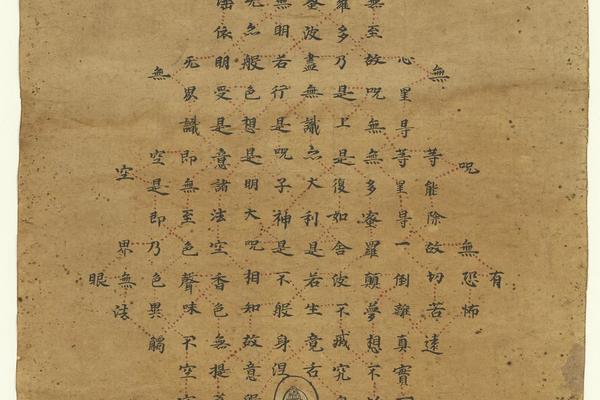 有
呪無恐怖
無等能除故切苦遠
心罣㝵等罣㝵一倒離真實
無至故呪無無多蜜羅顛夢想不
羅多乃是上是復如舍不滅究
蜜波盡無識亦大利是若生竟舌
無明若行是呪子神是不般身涅
无亦般色想是明大呪相知故意
依明受是意諸法空香色無提
无異識即無至色聲味不空
無空是即乃色異觸
空界無法
眼